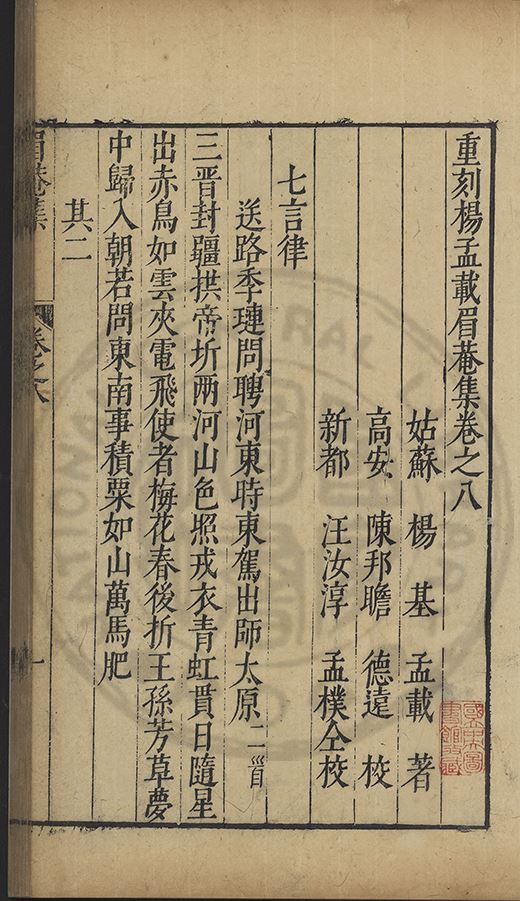 重刻楊孟載眉菴集卷之八
姑蘇 楊基 孟載 著
高安 陳邦瞻 德遠 校
新都 汪汝淳 孟樸 仝校
七言律
送路季璉問聘河東時東駕出師太原二首
三晉封疆拱帝圻兩河山色照戎衣青虹貫日隨星
出赤鳥如雲夾電飛使者梅花春後折王孫芳草夢
中歸入朝若問東南事積粟如山萬馬肥
其二
眉菴集
卷之八
一